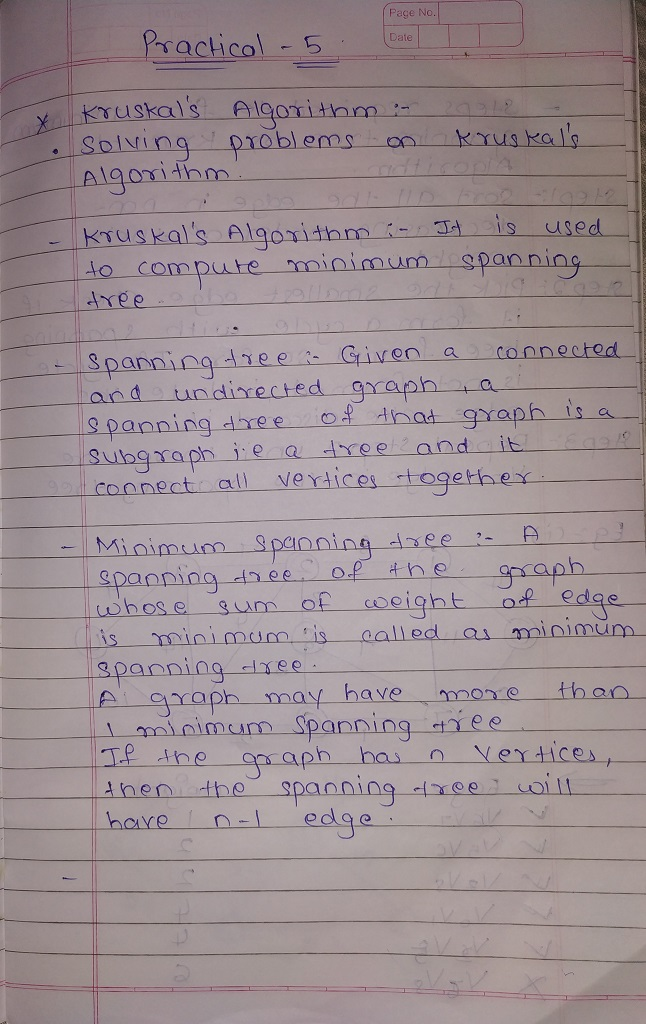 Page No.
Date
Practical - 5
* Kruskal's Algorithm :-
• Solving problems on Kruskal's
Algorithm.
- Kruskal's Algorithm :- It is used
to compute minimum spanning
tree.
- Spanning tree :- Given a connected
and undirected graph, a
spanning tree of that graph is a
subgraph i.e a tree and it
connect all vertices together.
- Minimum spanning tree :- A
spanning tree of the graph
whose sum of weight of edge
is minimum is called as minimum
spanning tree.
A graph may have more than
1 minimum spanning tree.
If the graph has n vertices,
then the spanning tree will
have n-1 edge.
-